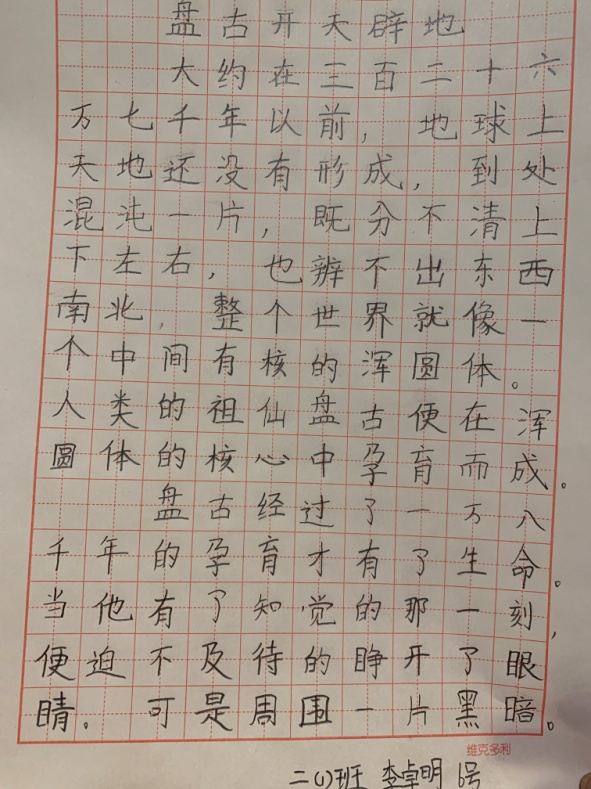 盘古开天辟地
大约在三百二十六
万七千年以前，地球上
天地还没有形成，到处
混沌一片，既分不清上
下左右，也辨不出东西
南北，整个世界就像一
个中间有核的浑圆体。
人类的祖仙盘古便在浑
圆体的核心中孕育而成。
盘古经过了一万八
千年的孕育才有了生命。
当他有了知觉的那一刻，
便迫不及待的睁开了眼
睛。可是周围一片黑暗。
维克多利
二(1)班 李卓明 6号